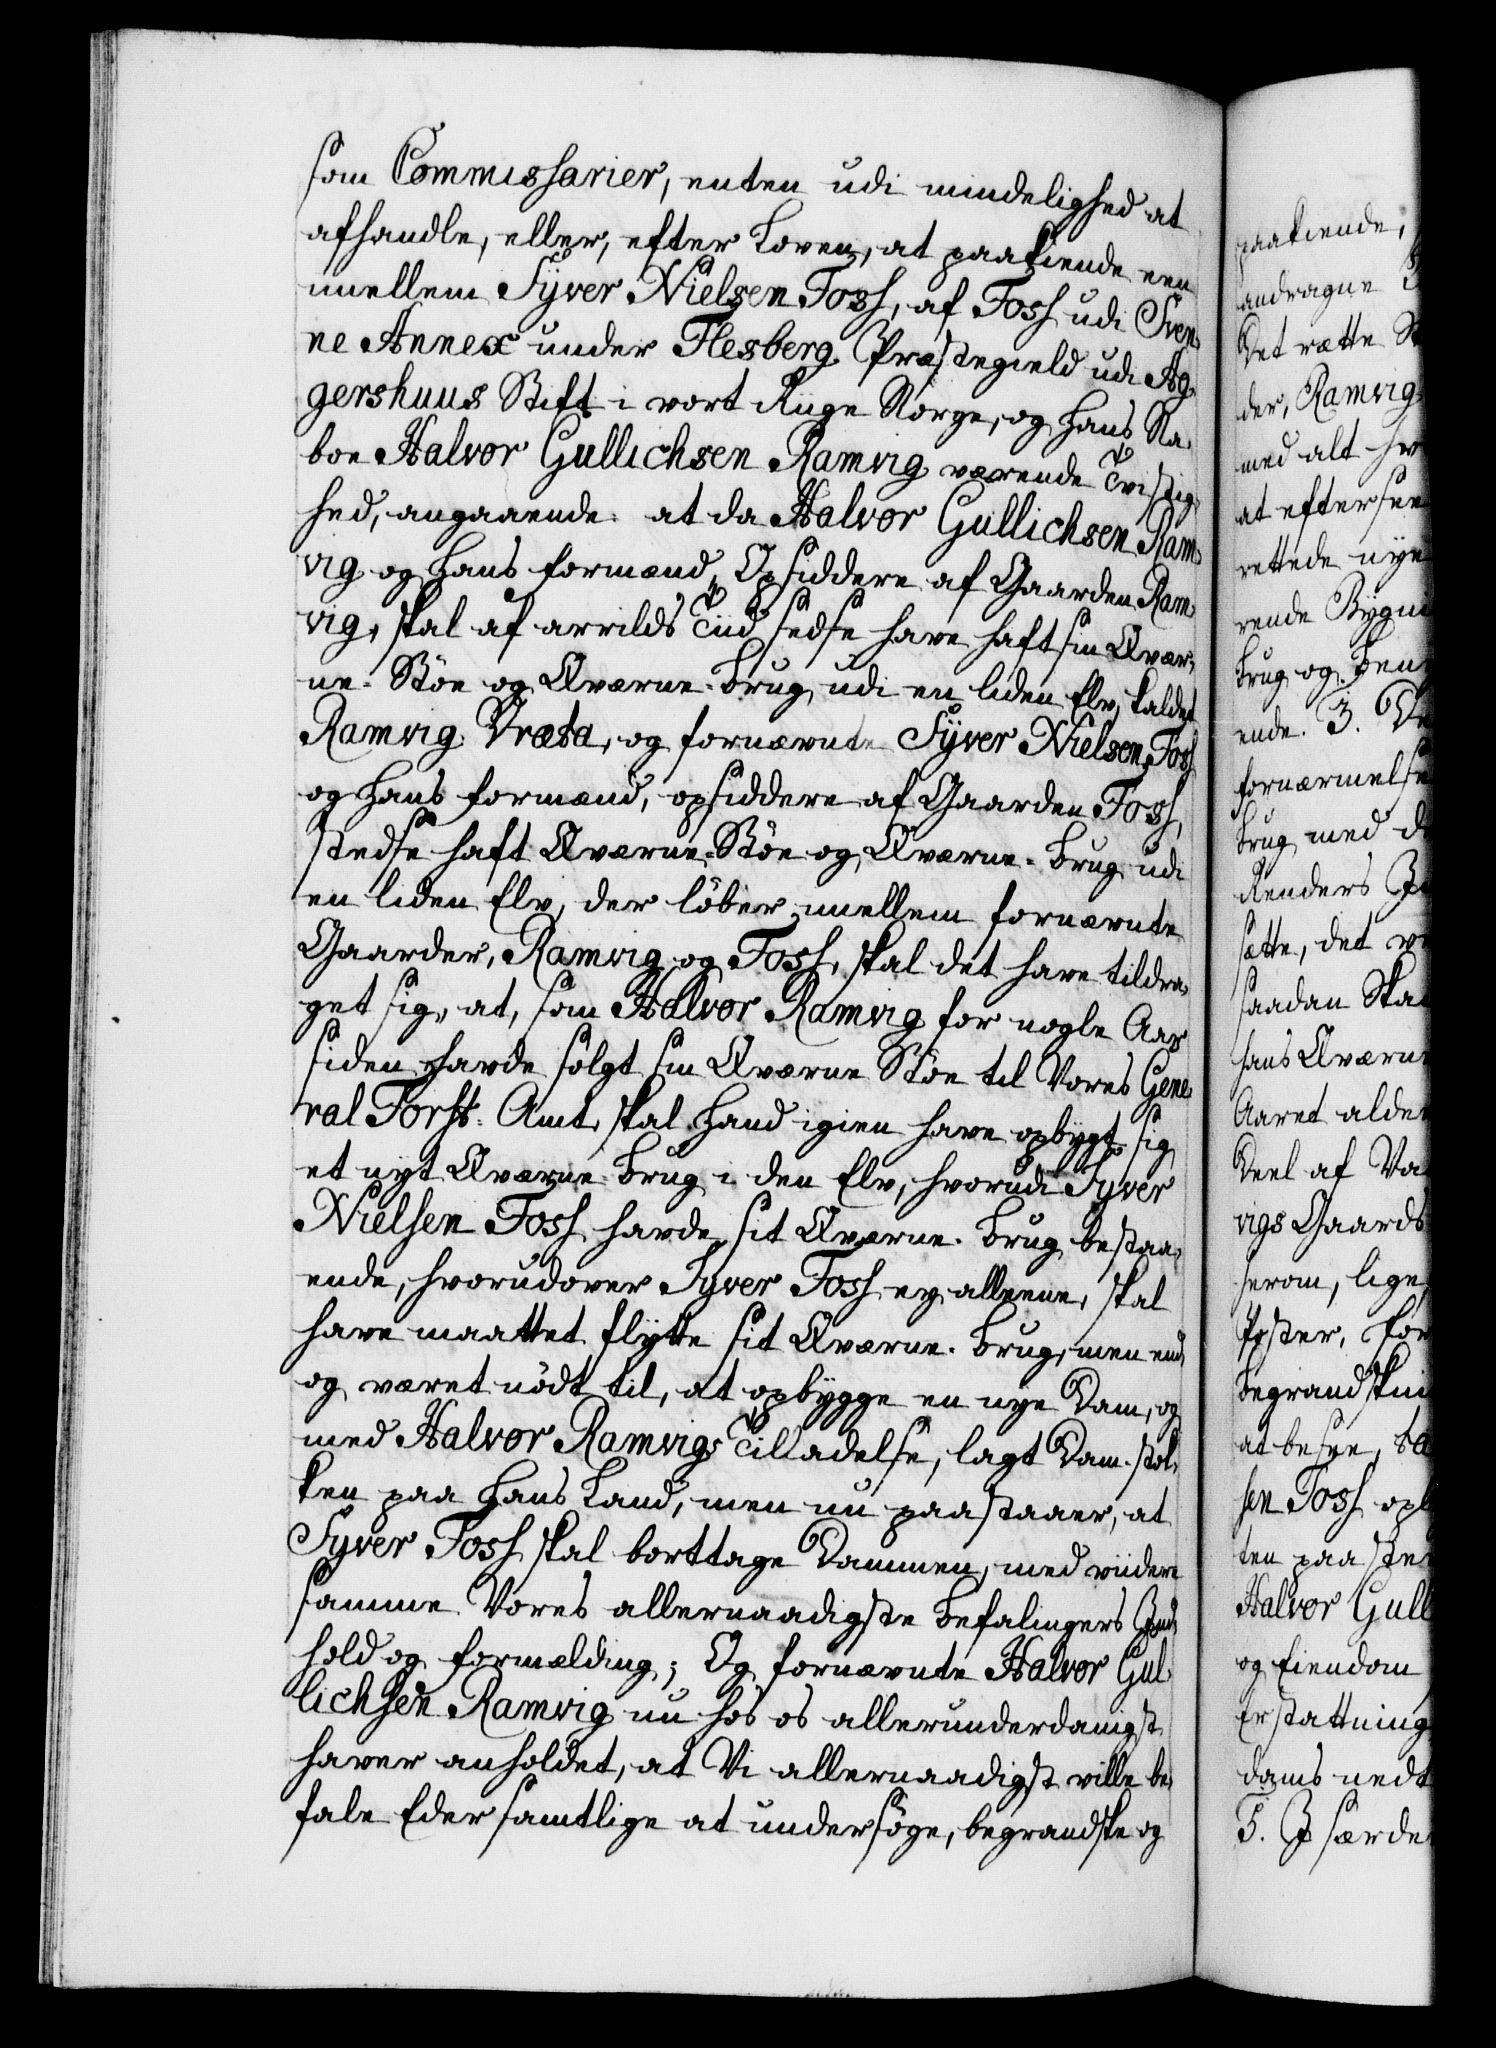 som Commissarier, enten udi mindelighed at
afhandle, eller, efter Loven, at paakiende een
imellem Syver Nielsen Fosh, af Fosh udi Sven-
ne Annex under Flesberg Præstegield udi Ag-
gershuus Stift i vort Riige Norge, og hans Na-
boe Halvor Gullichsen Ramvig værende Tvistig-
hed, angaaende at da Halvor Gullichsen Ram-
vig og hans formænd, Opsiddere af Gaarden Ram-
vig, skal af arrilds Tiid stedse have haft sin Qvær-
ne-Støe og Qværne-brug udi en liden Elv, kaldet
Ramvig Vræta, og fornævnte Syver Nielsen Fosh
og hans formænd, opsiddere af Gaarden Fosh,
stedse haft Qværne-Støe og Qværne-brug udi
en liden Elv, der löber imellem fornævnte
Gaarder, Ramvig og Fosh, skal det have tildra-
get sig, at, som Halvor Ramvig for nogle Aar
siden havde solgt sin Qværne Støe til Vores Gene-
ral Forst-Amt, skal hand igien have opbygt sig
et nyt Qværne-brug i den Elv, hvorudi Syver
Nielsen Fosh havde sit Qværne-brug bestaa-
ende, hvorudover Syver Fosh ey alleene, skal
have maattet flytte sit Qværne-brug, men end-
og været nödt til, at opbygge en nye Dam, og
med Halvor Ramvigs Tilladelse, lagt Dam-stok-
ken paa hans Land, men nu paastaaer, at
Syver Fosh skal borttage Dammen, med viidere
samme Vores allernaadigste befalingers Ind-
hold og formælding; Og fornævnte Halvor Gul-
lichsen Ramvig nu hos os allerunderdanigst
haver anholdet, at Vi allernaadigst ville be-
fale Eder samtlige at undersöge, begrandske og
paakiende,
andragne
Det rette
der, Ramvig
med alt
at eftersee
rettede nye
rende Bygni
brug og
ende. 3.
fornærmelse
brug med
Renders
sette, det
saadan Ska
hans Qværne
Aaret
Deel af Va
vigs Gaards
herom, lige
Poster, for
begrandskni
at besee,
sen Fosh opb
ten paa
Halvor Gull
og Eiendom
Erstattning
dams nedt
5. I særde